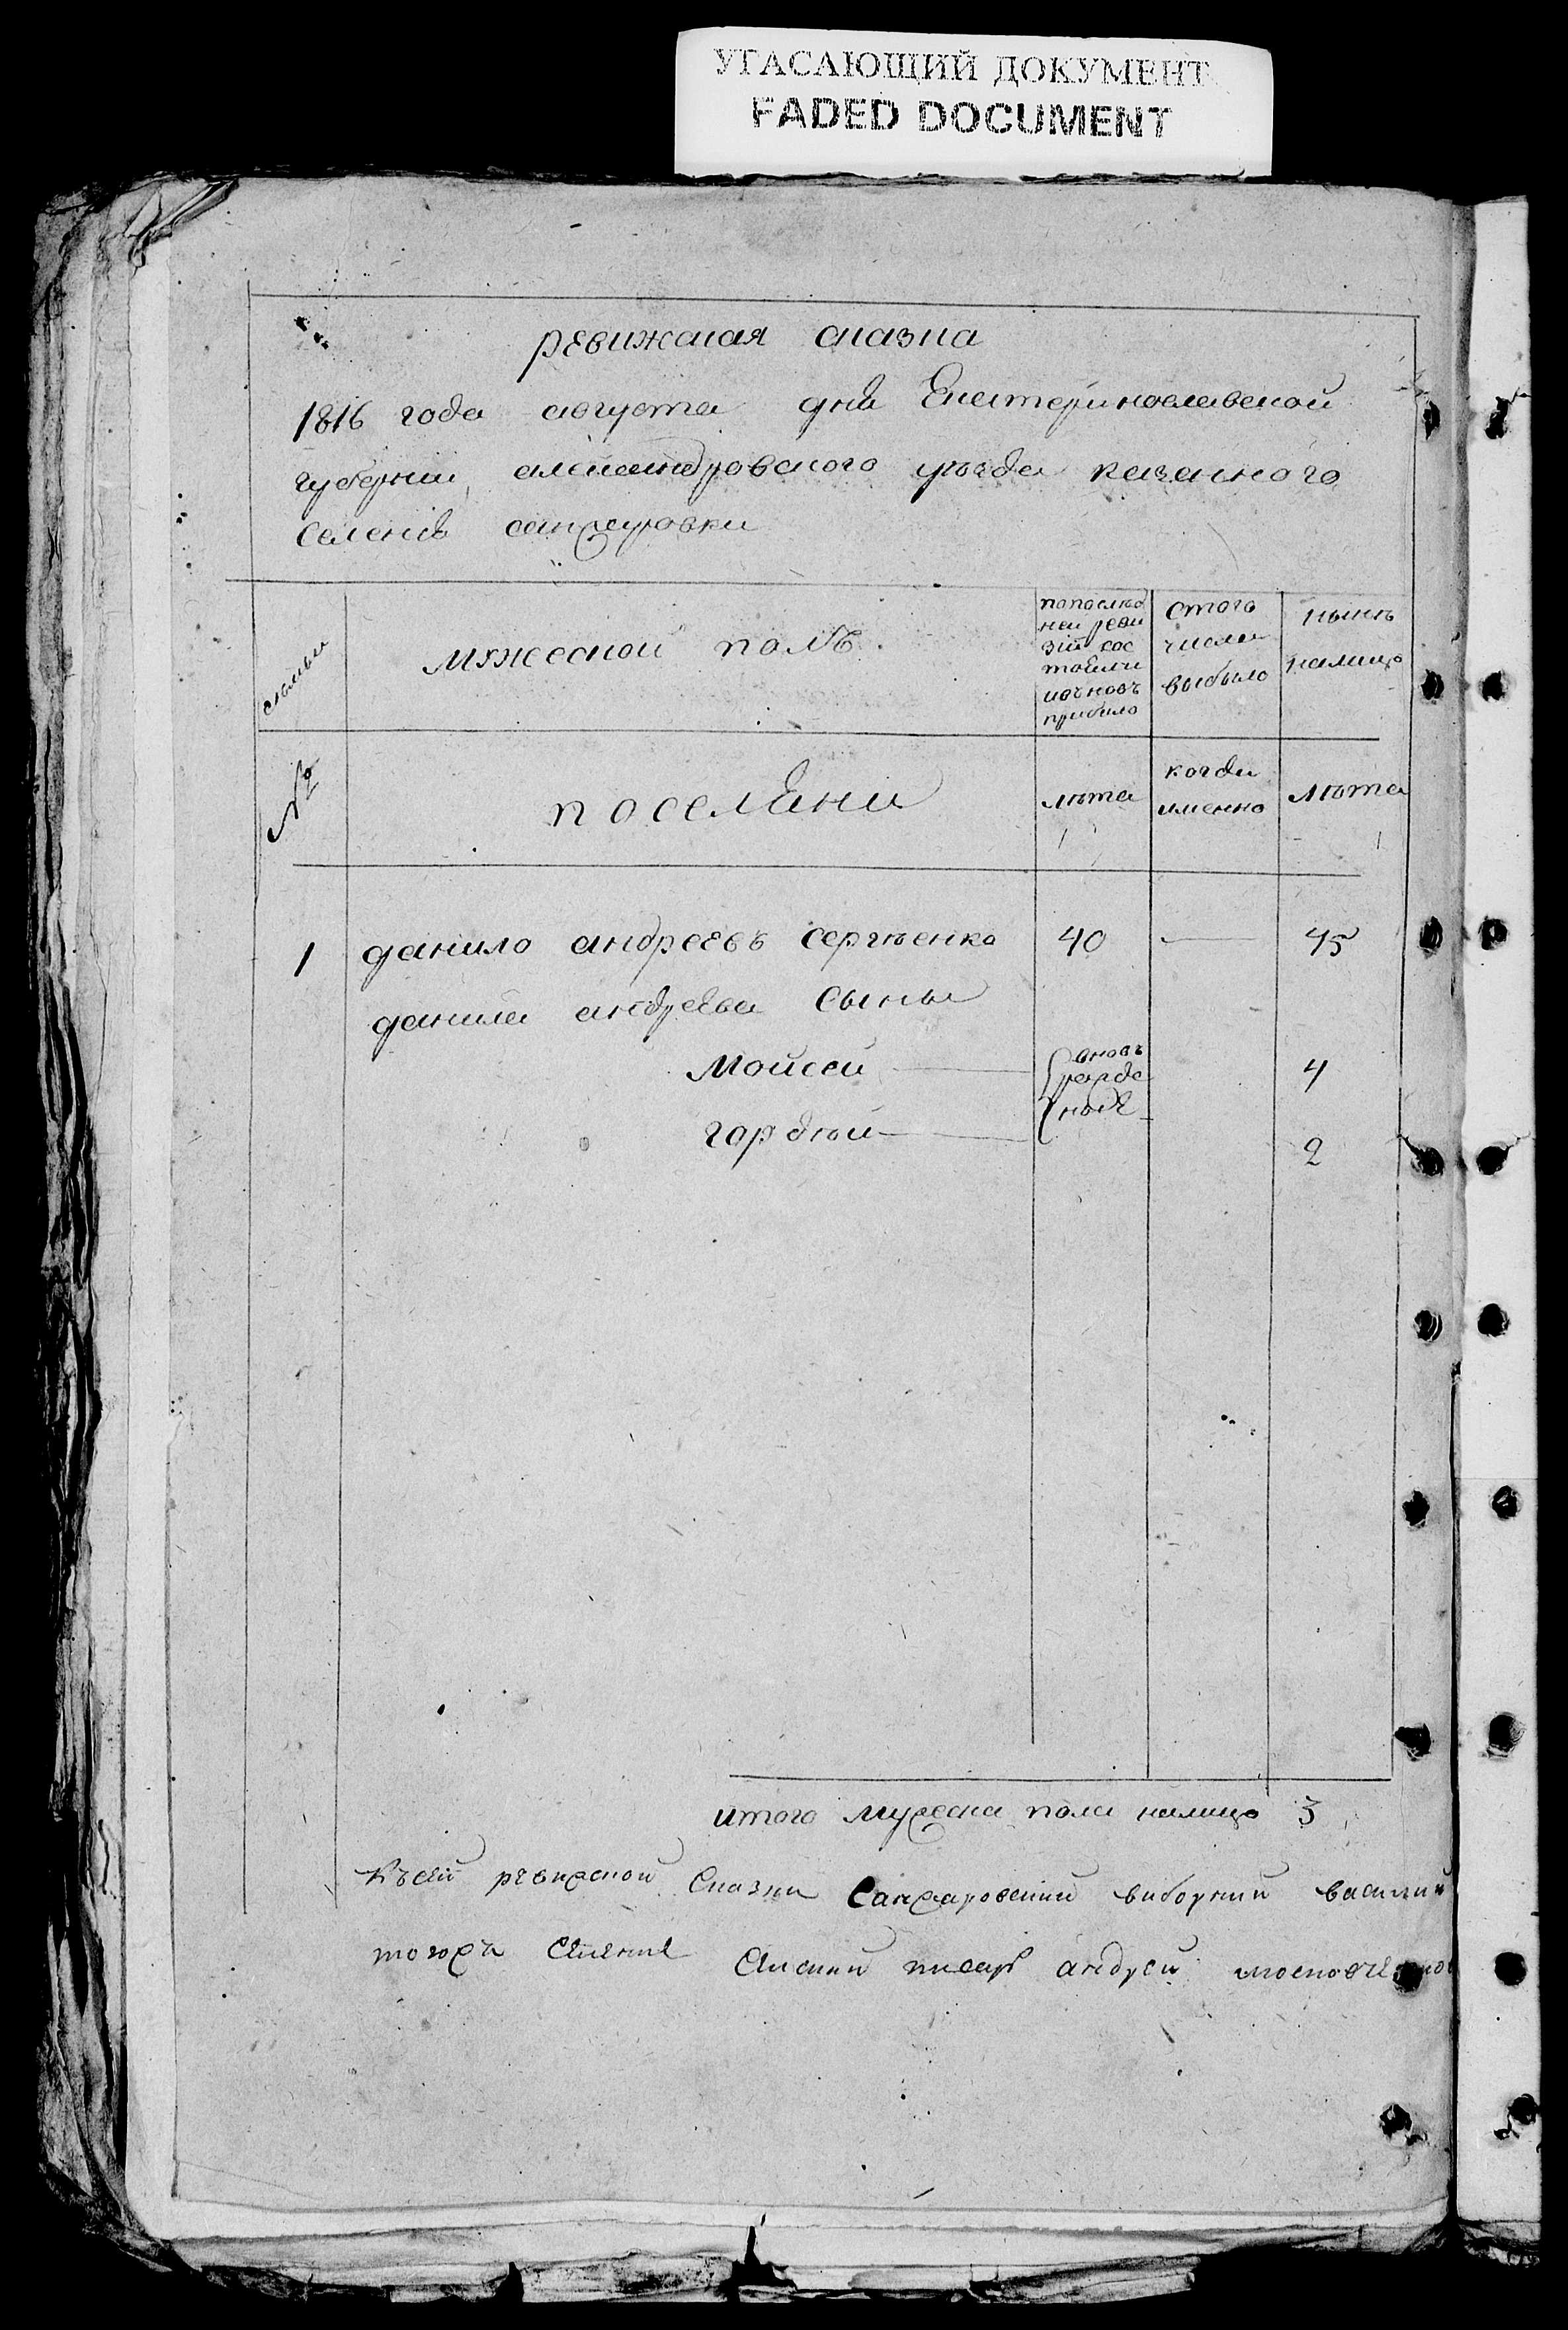 УГАСАЮЩИЙ ДОКУМЕНТ
FADED DOCUMENT
ревижская сказка
1816 года августа дня Екатеринославской
губернии александровского уѣзда казенного
селения санжаровки
семьи
мужеской полъ
попослѣд
ней реви
зіи сос
тояли
изъ новъ
прибыло
стого
числа
выбыло
нынѣ
налицо
№
поселяни
лѣта
когда
именно
лѣта
1 данило андреевъ сергѣенко 40 — 45
данила андреева сыны
Мойсей вновь 4
рожде
ные
гордѣй 2
итого мужеска пола налицо 3
Къ сей ревижской Сказки Санжаровский виборний василий
тогожъ селения Сельский писарь андрей